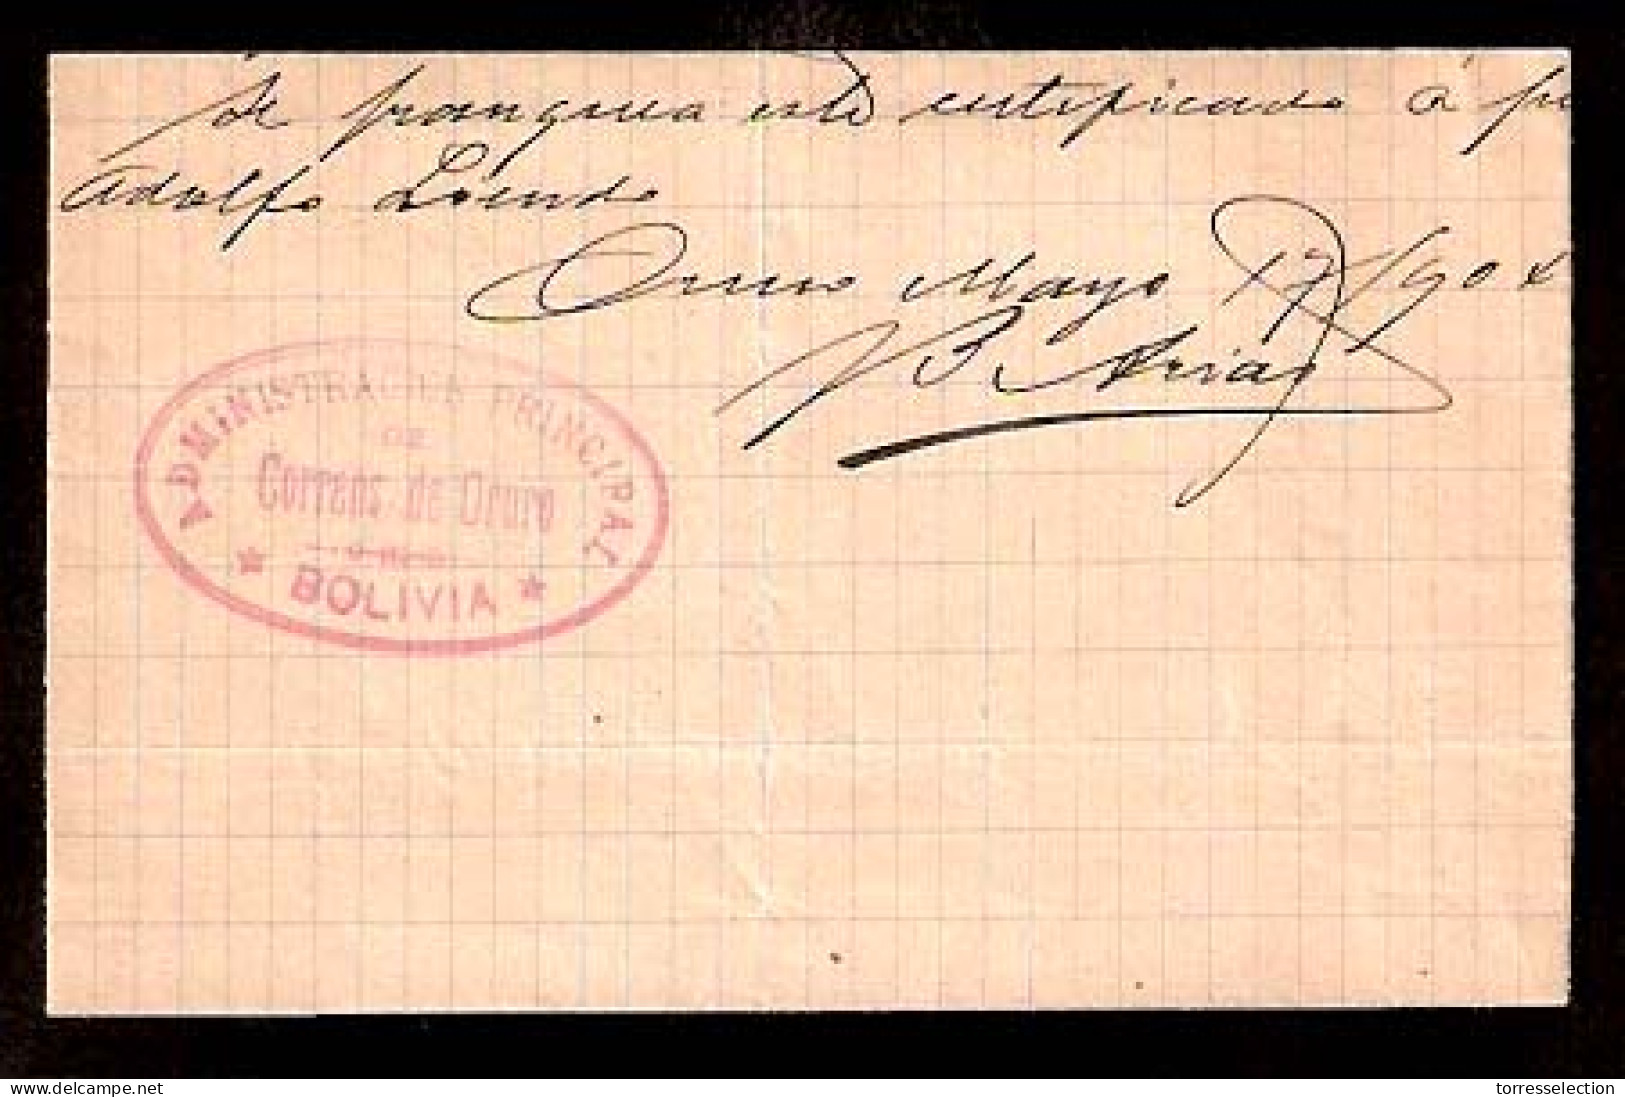 Se franquea este certificado á
Adolfo Loendo
Oruro Mayo 17/904
P. Arias
ADMINISTRACION PRINCIPAL
DE
Correos de Oruro
BOLIVIA
delcampe.net
torresselection